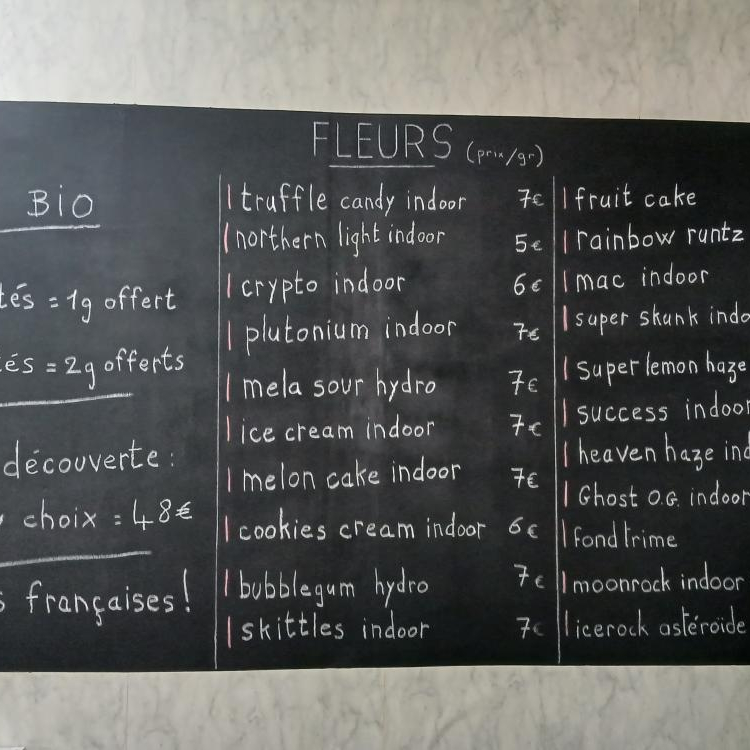 FLEURS (prix/gr)
BiO
tés = 1g offert
tés = 2g offerts
découverte :
choix = 48€
s françaises!
truffle candy indoor 7€
northern light indoor 5€
crypto indoor 6€
plutonium indoor 7€
mela sour hydro 7€
ice cream indoor 7€
melon cake indoor 7€
cookies cream indoor 6€
bubblegum hydro 7€
skittles indoor 7€
fruit cake
rainbow runtz
mac indoor
super skunk indo
Super lemon haze
success indoor
heaven haze ind
Ghost O.G. indoor
fond trime
moonrock indoor
icerock astéroïde